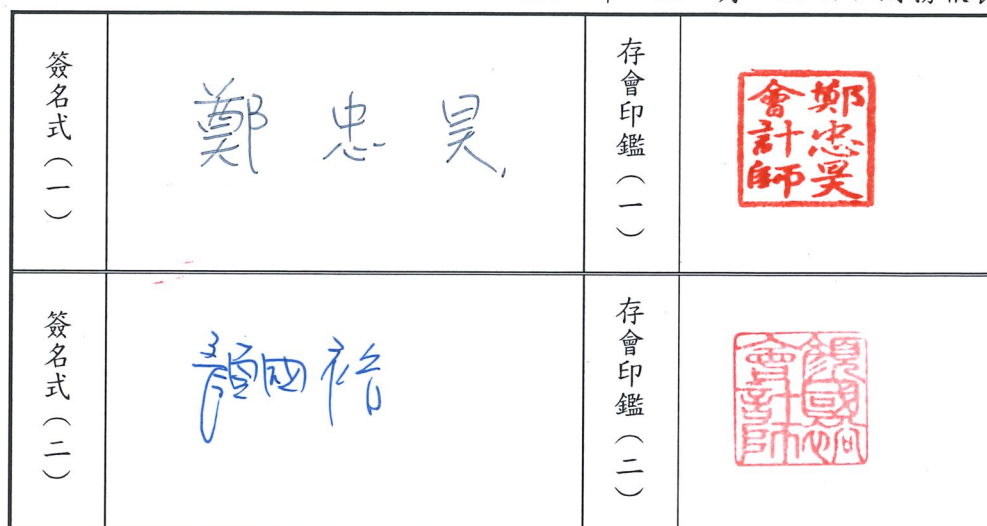 簽名式(一)
鄭忠昊
存會印鑑(一)
鄭忠昊
會計師
簽名式(二)
顏國裕
存會印鑑(二)
顏國裕
會計師